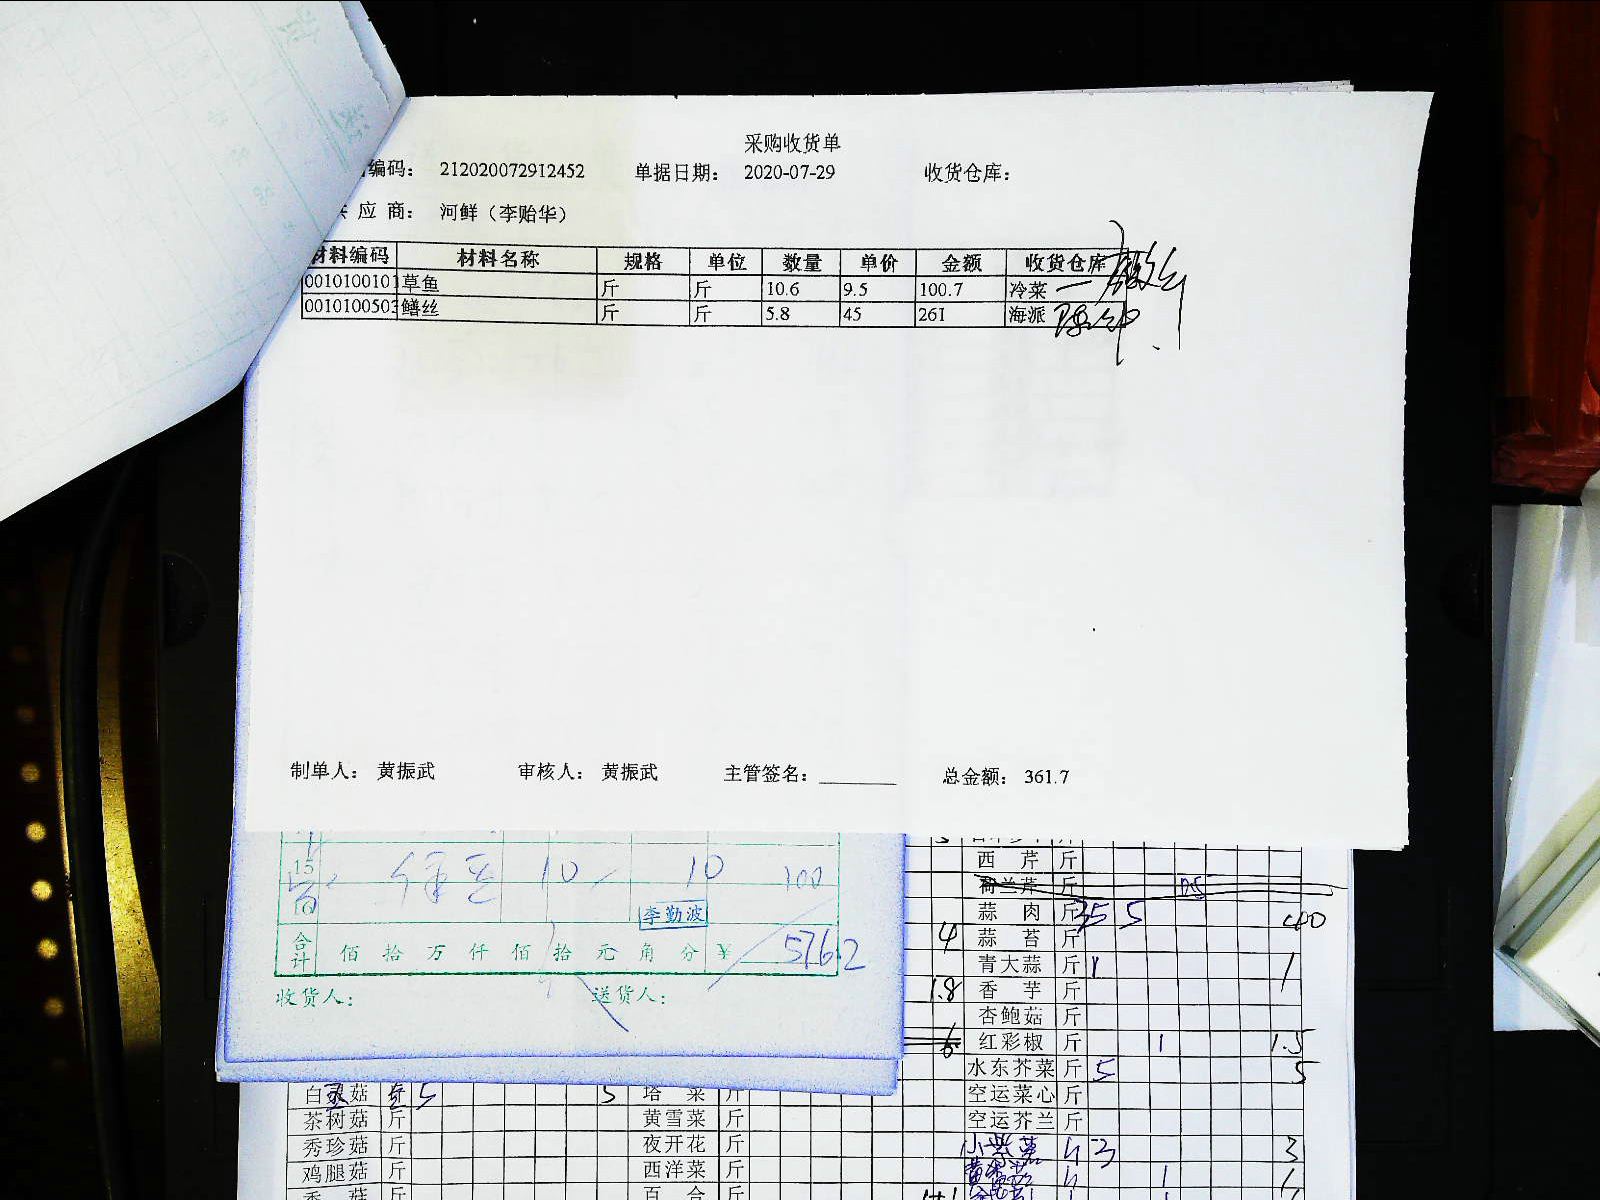 采购收货单
编码： 212020072912452 单据日期： 2020-07-29 收货仓库：
应 商： 河鲜（李贻华）
材料编码 材料名称 规格 单位 数量 单价 金额 收货仓库
0010100101 草鱼 斤 斤 10.6 9.5 100.7 冷菜
001010050 鳝丝 斤 斤 5.8 45 261 海派
制单人： 黄振武 审核人： 黄振武 主管签名： 总金额： 361.7
15 10 10 100
16
李勤波
合计 佰 拾 万 仟 佰 拾 元 角 分 ¥ 576.2
收货人： 送货人：
西 芹 斤
荷兰芹 斤
蒜 肉 斤 35 5
4 蒜 苔 斤
青大蒜 斤 1 1
1.8 香 芋 斤
杏鲍菇 斤
6 红彩椒 斤 1 1.5
水东芥菜 斤 5 5
白灵菇 5 5 塔 菜 斤 空运菜心 斤
茶树菇 斤 黄雪菜 斤 空运芥兰 斤
秀珍菇 斤 夜开花 斤 3 3
鸡腿菇 斤 西洋菜 斤 1 1
香 菇 斤 百 合 斤